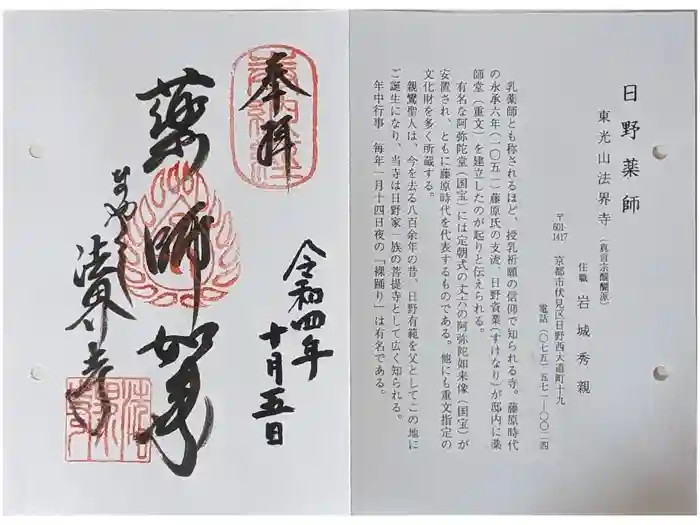 日野薬師
東光山法界寺（真言宗醍醐派）
住職 岩城秀親
〒601-1417 京都市伏見区日野西大道町十九
電話（〇七五）五七一―〇〇二四
乳薬師とも称されるほど、授乳祈願の信仰で知られる寺。藤原時代
の永承六年（一〇五一）藤原氏の支流、日野資業（すけなり）が邸内に薬
師堂（重文）を建立したのが起りと伝えられる。
有名な阿弥陀堂（国宝）には定朝式の丈六の阿弥陀如来像（国宝）が
安置され、ともに藤原時代を代表するものである。他にも重文指定の
文化財を多く所蔵する。
親鸞聖人は、今を去る八百余年の昔、日野有範を父としてこの地に
ご誕生になり、当寺は日野家一族の菩提寺として広く知られる。
年中行事 毎年一月十四日夜の「裸踊り」は有名である。
奉拝
令和四年
十月五日
薬師如来
法界寺